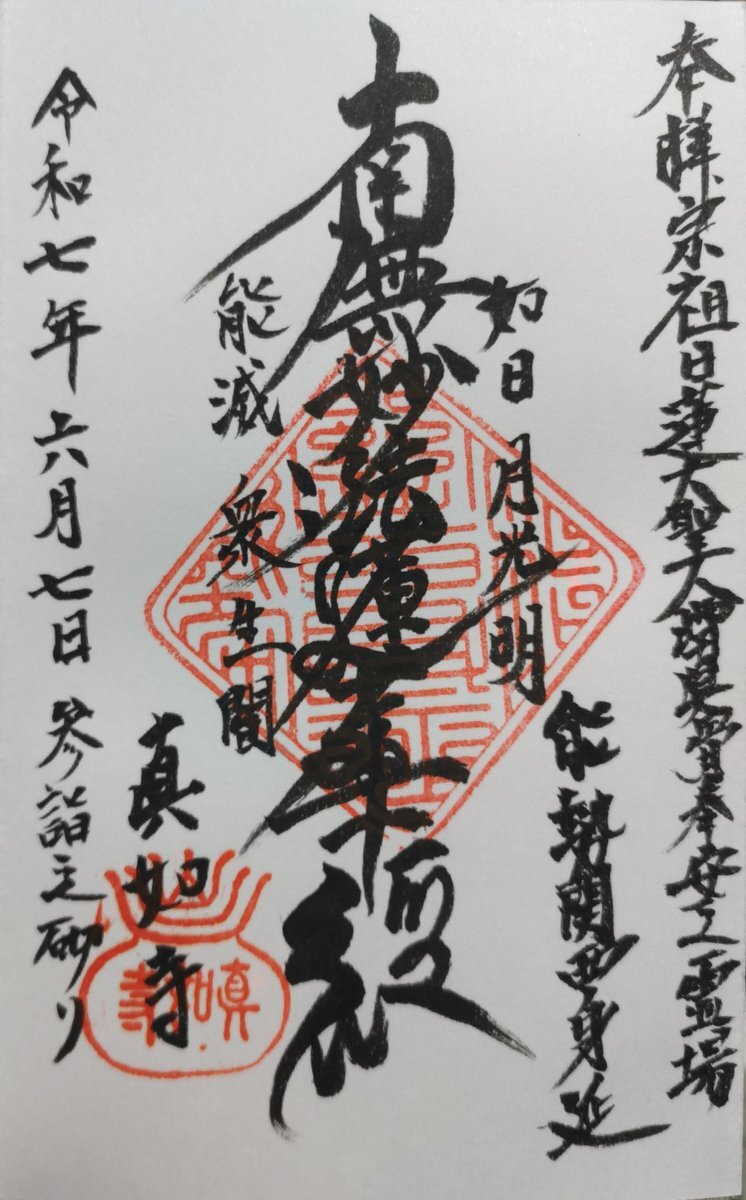 奉拝宗祖日蓮大聖人御真骨奉安之霊場
能勢関西身延
如日月光明
南無妙法蓮華経
能滅衆生闇
真如寺
令和七年六月七日参詣之砌り